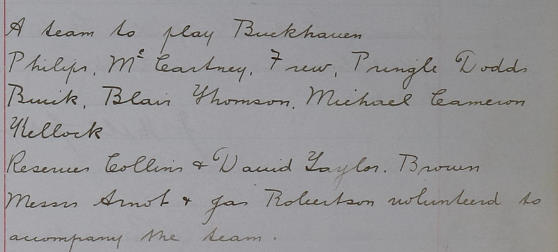 A team to play Buckhaven
Philips, Mc Cartney, Frew, Pringle Dodds
Buik, Blair Thomson, Michael Cameron
Kellock
Reserves Collins & David Taylor. Brown
Messrs Arnot & Jas Robertson volunteerd to
accompany the team.